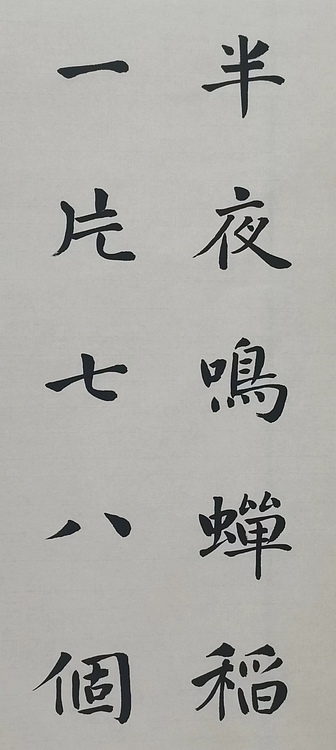 半夜鳴蟬稻
一片七八個